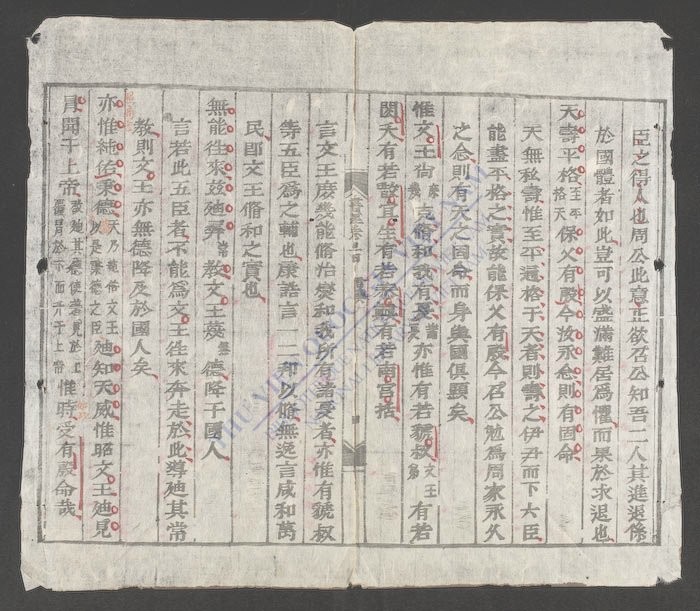 臣之得人也周公此意正欲召公知吾二人其進退係
於國體者如此豈可以盛滿難居爲懼而果於求退也
天壽平格至平格天保乂有殷今汝永念則有固命
天無私壽惟至平通格于天者則壽之伊尹而下六臣
能盡平格之實故能保乂有殷今召公勉爲周家永久
之念則有天之固命而身與國俱顯矣
惟文王尚克脩和我有夏亦惟有若虢叔文王弟有若
閎夭有若散宜生有若泰顚有若南宮括
言文王庶幾能脩治燮和我所有諸夏者亦惟有虢叔
等五臣爲之輔也康誥言一二邦以脩無逸言咸和萬
民卽文王脩和之實也
無能徃來兹廸彛常敎文王蔑無德降于國人
言若此五臣者不能爲文王徃來奔走於此導廸其常
敎則文王亦無德降及於國人矣
亦惟純佑秉德天乃純佑文王以是秉德之臣廸知天威惟昭文王廸見
冐聞于上帝啟廸其德使著見於上覆冐於下而升聞于上帝惟時受有殷命哉
THƯ VIỆN QUỐC GIA VIỆT NAM